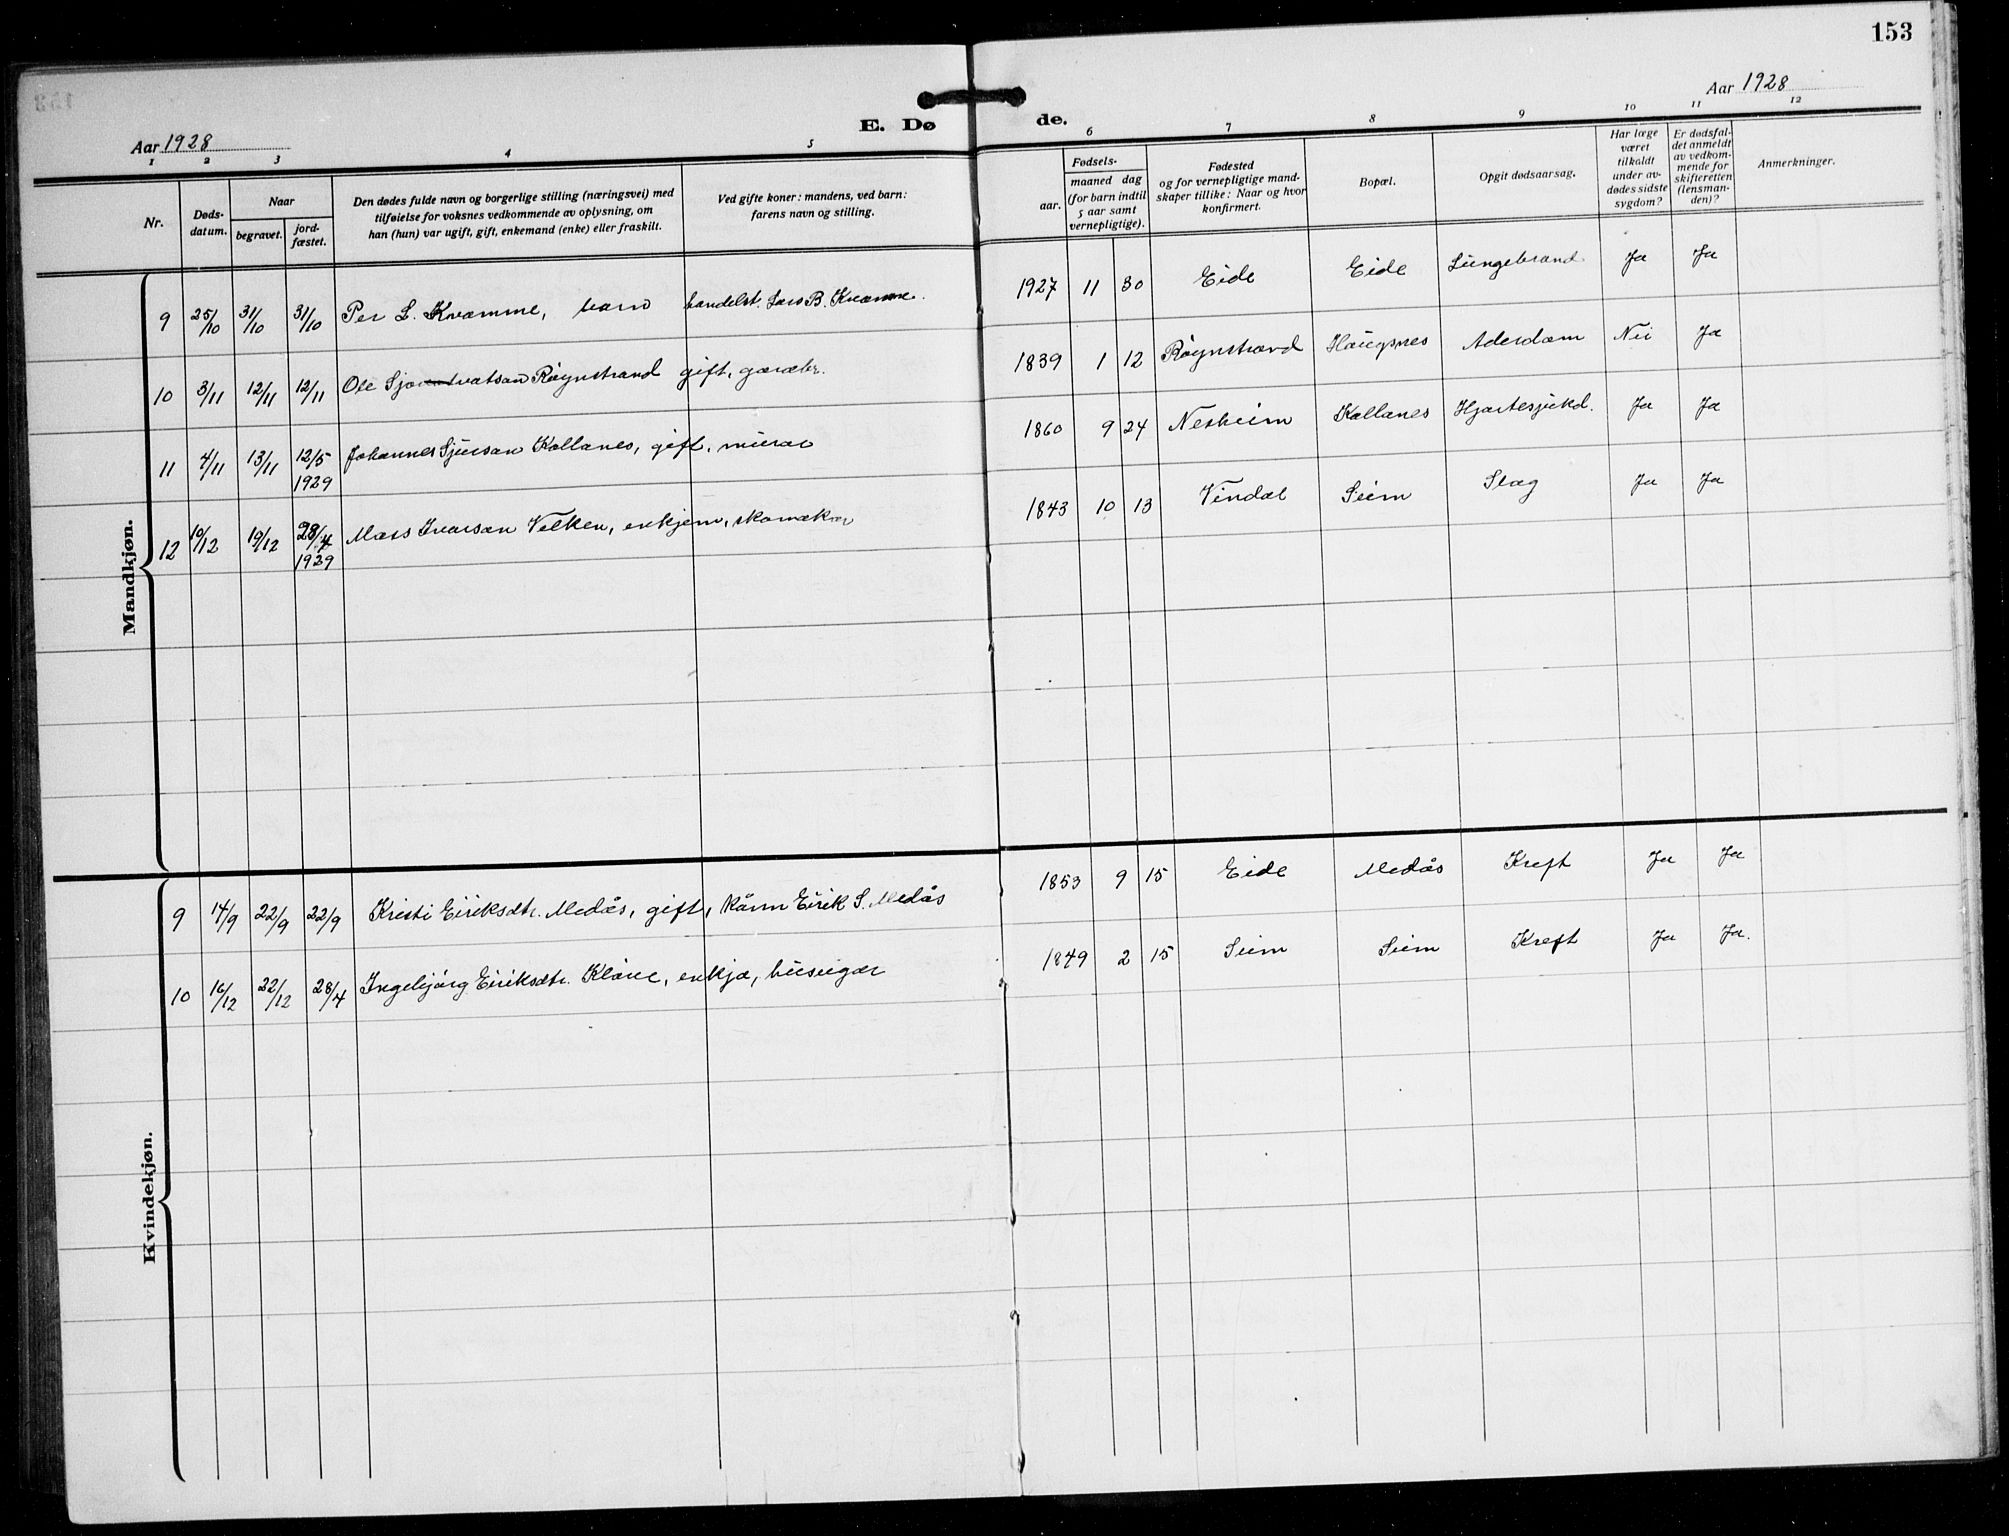 153
Aar 1928
Aar 1928
E. Dø
de.
1 2 3 4 5 6 7 8 9 10 11 12
Nr.
Døds-
datum.
Naar
begravet.
jord-
fæstet.
Den dødes fulde navn og borgerlige stilling (næringsvei) med
tilføielse for voksnes vedkommende av oplysning, om
han (hun) var ugift, gift, enkemand (enke) eller fraskilt.
Ved gifte koner: mandens, ved barn:
farens navn og stilling.
Fødsels-
aar.
maaned dag
(for barn indtil
5 aar samt
vernepligtige).
Fødested
og for vernepligtige mand-
skaper tillike: Naar og hvor
konfirmert.
Bopæl.
Opgit dødsaarsag.
Har læge
været
tilkaldt
under av-
dødes sidste
sygdom?
Er dødsfal-
det anmeldt
av vedkom-
mende for
skifteretten
(lensman-
den)?
Anmerkninger.
Mandkjøn.
9 25/10 31/10 31/10 Per L. Kvamme, barn handelst. Lars B. Kvamme. 1927 11 30 Eide Eide Lungebrand Ja Ja
10 3/11 12/11 12/11 Ole Røynstrand gift, gardbr. 1839 1 12 Røynstrand Haugsnes Aderdom Nei Ja
11 4/11 13/11 12/5 Johannes Sjursan Kollanes, gift, murar 1860 9 24 Nesheim Kollanes Hjartesjukd. Ja Ja
1929
12 10/12 19/12 28/4 Mass Ivarsan Velken, enkjem, skomakar 1843 10 13 Vindal Seim Slag Ja Ja
1929
Kvindekjøn.
9 14/9 22/9 22/9 Kristi Eiriksdtr. Medås, gift, Kårm Eirik S. Medås 1853 9 15 Eide Medås Kreft Ja Ja
10 16/12 22/12 28/4 Ingebjørg Eiriksdtr. Kløve, enkja, huseigar 1849 2 15 Seim Seim Kreft Ja Ja.